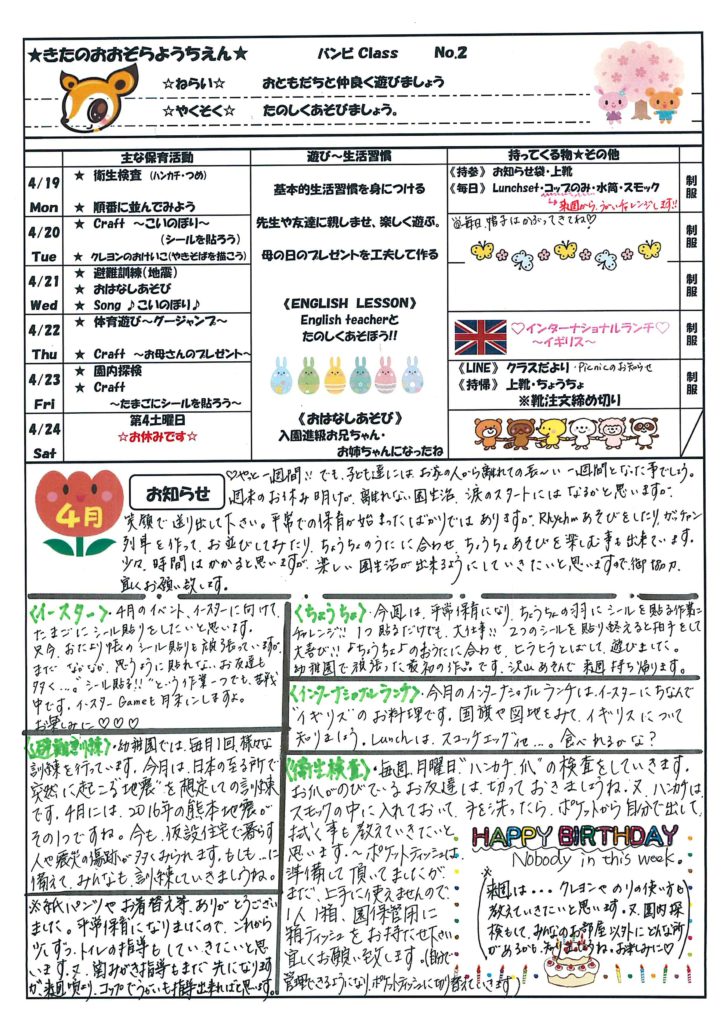 ★きたのおおぞらようちえん★ バンビ Class No.2
☆ねらい☆ おともだちと仲良く遊びましょう
☆やくそく☆ たのしくあそびましょう。
主な保育活動 遊び～生活習慣 持ってくる物★その他
4/19 Mon
★ 衛生検査 (ハンカチ・つめ)
★ 順番に並んでみよう
4/20 Tue
★ Craft ～こいのぼり～
(シールを貼ろう)
★ クレヨンのおけいこ(やきそばを描こう)
4/21 Wed
★ 避難訓練(地震)
★ おはなしあそび
★ Song ♪こいのぼり♪
4/22 Thu
★ 体育遊び～グージャンプ～
★ Craft ～お母さんのプレゼント～
4/23 Fri
★ 園内探検
★ Craft
～たまごにシールを貼ろう～
4/24 Sat
第4土曜日
☆お休みです☆
基本的生活習慣を身につける
先生や友達に親しませ、楽しく遊ぶ。
母の日のプレゼントを工夫して作る
《ENGLISH LESSON》
English teacherと
たのしくあそぼう!!
《おはなしあそび》
入園進級お兄ちゃん・
お姉ちゃんになったね
《持参》 お知らせ袋・上靴
《毎日》 Lunchset・コップのみ・水筒・スモック
来週から、うがいチャレンジします!!
毎日、帽子はかぶってきてね♡
♡インターナショナルランチ♡
～イギリス～
《LINE》 クラスだより・Picnicのお知らせ
《持帰》 上靴・ちょうちょ
※靴注文締め切り
制服
制服
制服
制服
制服
4月
お知らせ
♡やっと一週間!! でも、子ども達には、お家の人から離れての長～い一週間となった事でしょう。
週末のお休み明けが、離れない園生活、涙のスタートにはなるかと思いますが、
笑顔で送り出して下さい。平常での保育が始まったばかりではありますが、Rhythmあそびをしたり、ガッチャン
列車を作って、お並びしてみたり、ちょうちょのうたに合わせ、ちょうちょあそびを楽しむ事も出来ています。
少々、時間はかかると思いますが、楽しい園生活が出来るようにしていきたいと思いますので、御協力、
宜しくお願い致します。
〈イースター〉・4月のイベント、イースターに向けて、
たまごにシール貼りをしたいと思います。
又、今、おたより帳のシール貼りを頑張っていますが、
まだ、なかなか、思うように貼れない、お友達も
多く…。"シール貼る!!"という作業一つでも、苦戦
中です。イースターGameも月末にしますよ。
お楽しみに♡♡♡
〈避難訓練〉・幼稚園では、毎月1回、様々な
訓練を行っています。今月は、日本の至る所で
突然に起こる"地震"を想定しての訓練
です。4月には、2016年の熊本地震が
その1つですね。今も、仮設住宅で暮らす
人や震災の傷跡が多くみられます。もしも…に
備えて、みんなも、訓練していきましょうね。
※紙パンツや、お着替え等、ありがとうござい
ました。平常保育になりましたので、これから
少しずつ、トイレの指導もしていきたいと思
います。又、歯みがき指導もまだ先になります
が、来週頃より、コップでうがいも指導出来ればと思います。
〈ちょうちょ〉・今週は、平常保育になり、ちょうちょの羽にシールを貼る作業に
チャレンジ!! 1つ貼るだけでも、大仕事!! 2つのシールを貼り終えると拍手をして
大喜び!! ♪ちょうちょ♪のおうたに合わせ、ヒラヒラとばして、遊びました。
幼稚園で頑張った最初の作品です。沢山あそんで来週持ち帰ります。
〈インターナショナルランチ〉・今月のインターナショナルランチは、イースターにちなんで
"イギリス"のお料理です。国旗や図地をみて、イギリスについて
知りましょう。Lunchは、スコッチエッグ他…。食べれるかな？
〈衛生検査〉・毎週、月曜日"ハンカチ、爪"の検査をしていきます。
お爪がのびているお友達は、切っておきましょうね。又、ハンカチは、
スモックの中に入れておいて、手を洗ったら、ポケットから自分で出して、
拭く事も教えていきたいと
思います。～ポケットティッシュは、
準備して頂いてましたが、
まだ、上手に使えませんので、
1人1箱、園保管用に
箱ティッシュをお持たせ下さい。
宜しくお願い致します。(自分で
管理できるようになり、ポケットティッシュに切り替えていきます)
HAPPY BIRTHDAY
Nobody in this week.
※来週は・・・クレヨンやのりの使い方も
教えていきたいと思います。又、園内探
検もして、みんなのお部屋以外にどんな所
があるかも、知りましょうね。お楽しみに♡